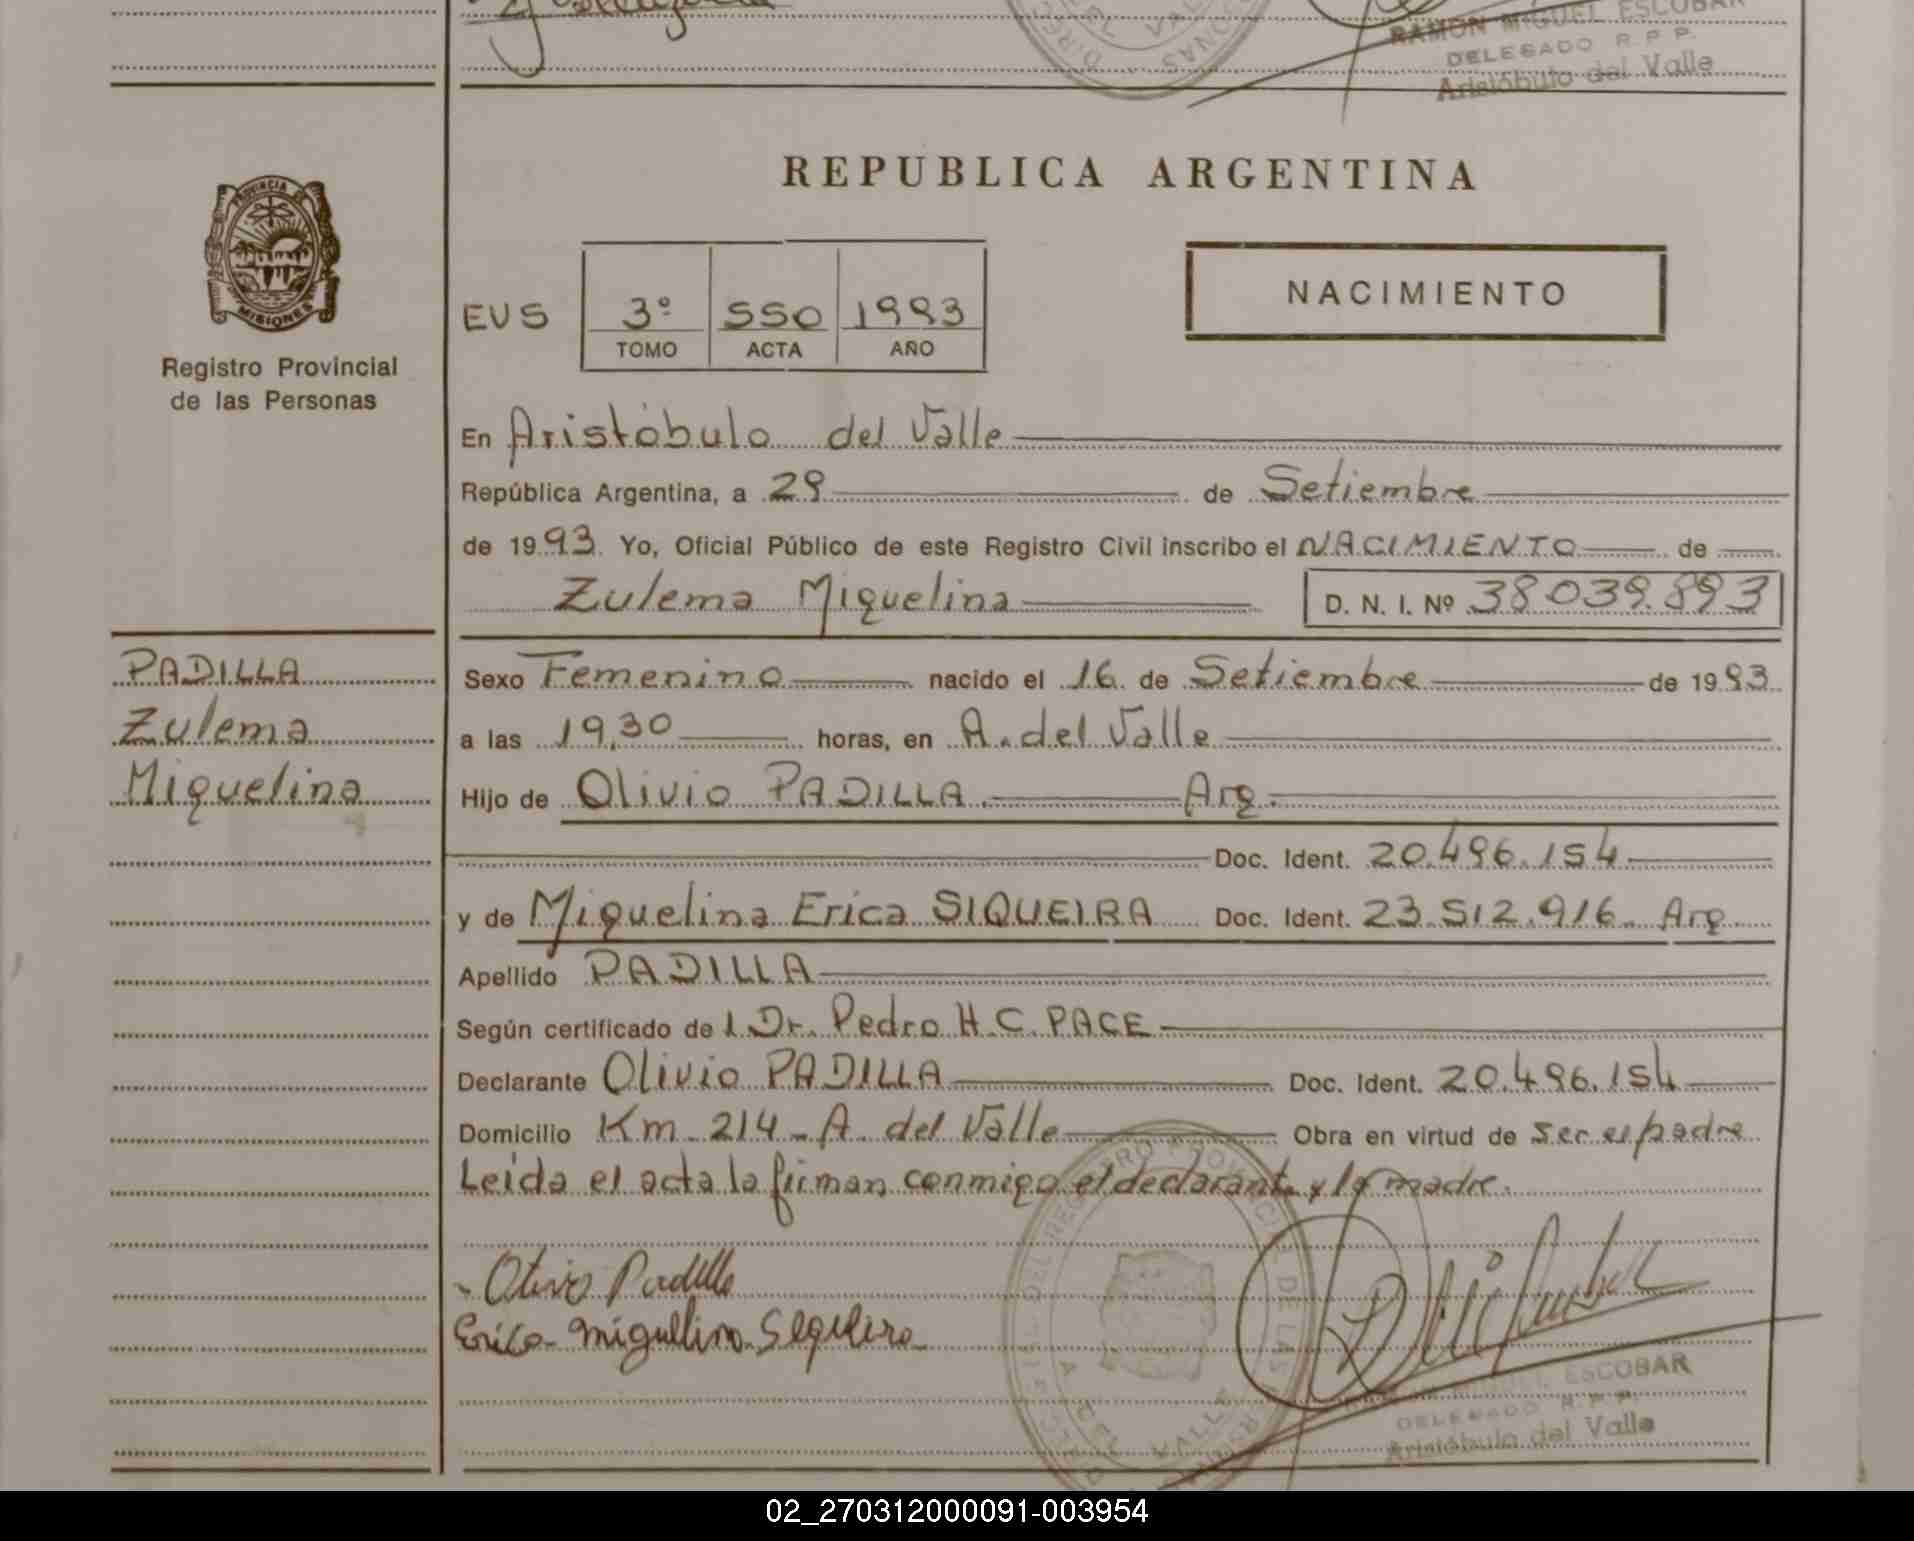 RAMON MIGUEL ESCOBAR
DELEGADO R.P.P.
Aristóbulo del Valle
REPUBLICA ARGENTINA
PROVINCIA DE
MISIONES
Registro Provincial
de las Personas
EVS 3º 550 1993
TOMO ACTA AÑO
NACIMIENTO
En Aristóbulo del Valle
República Argentina, a 29 de Setiembre
de 1993. Yo, Oficial Público de este Registro Civil inscribo el NACIMIENTO de
Zulema Miquelina D. N. I. Nº 38.039.893
PADILLA
Zulema
Miquelina
Sexo Femenino nacido el 16 de Setiembre de 1993
a las 19,30 horas, en A. del Valle
Hijo de Olivio PADILLA. Arg.
Doc. Ident. 20.496.154
y de Miquelina Erica SIQUEIRA Doc. Ident. 23.512.916. Arg.
Apellido PADILLA
Según certificado de l Dr. Pedro H. C. PACE
Declarante Olivio PADILLA Doc. Ident. 20.496.154
Domicilio Km. 214 - A. del Valle Obra en virtud de ser el padre
Leída el acta la firman conmigo el declarante y la madre.
Olivio Padilla
Erica Miguelina Sequeira
MIGUEL ESCOBAR
DELEGADO R.P.P.
Aristóbulo del Valle
02_270312000091-003954